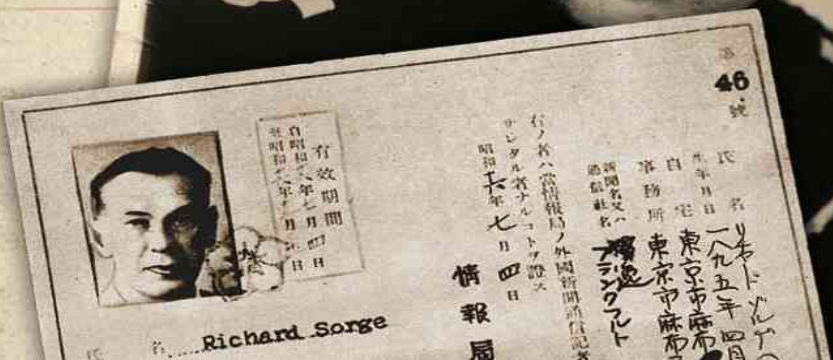 第
46
號
氏名 リヒャルド ゾルゲ
生年月日 一八九五年 四月
自宅 東京市麻布
事務所 東京市麻布
新聞名又ハ
通信社名
フランクフルト
右ノ者ハ當情報局ノ外國新聞通信記者
タルコトヲ證ス
昭和十六年七月四日
情報局
有效期間
自昭和
年七月四日
至昭和
年
月
日
氏名
Richard Sorge